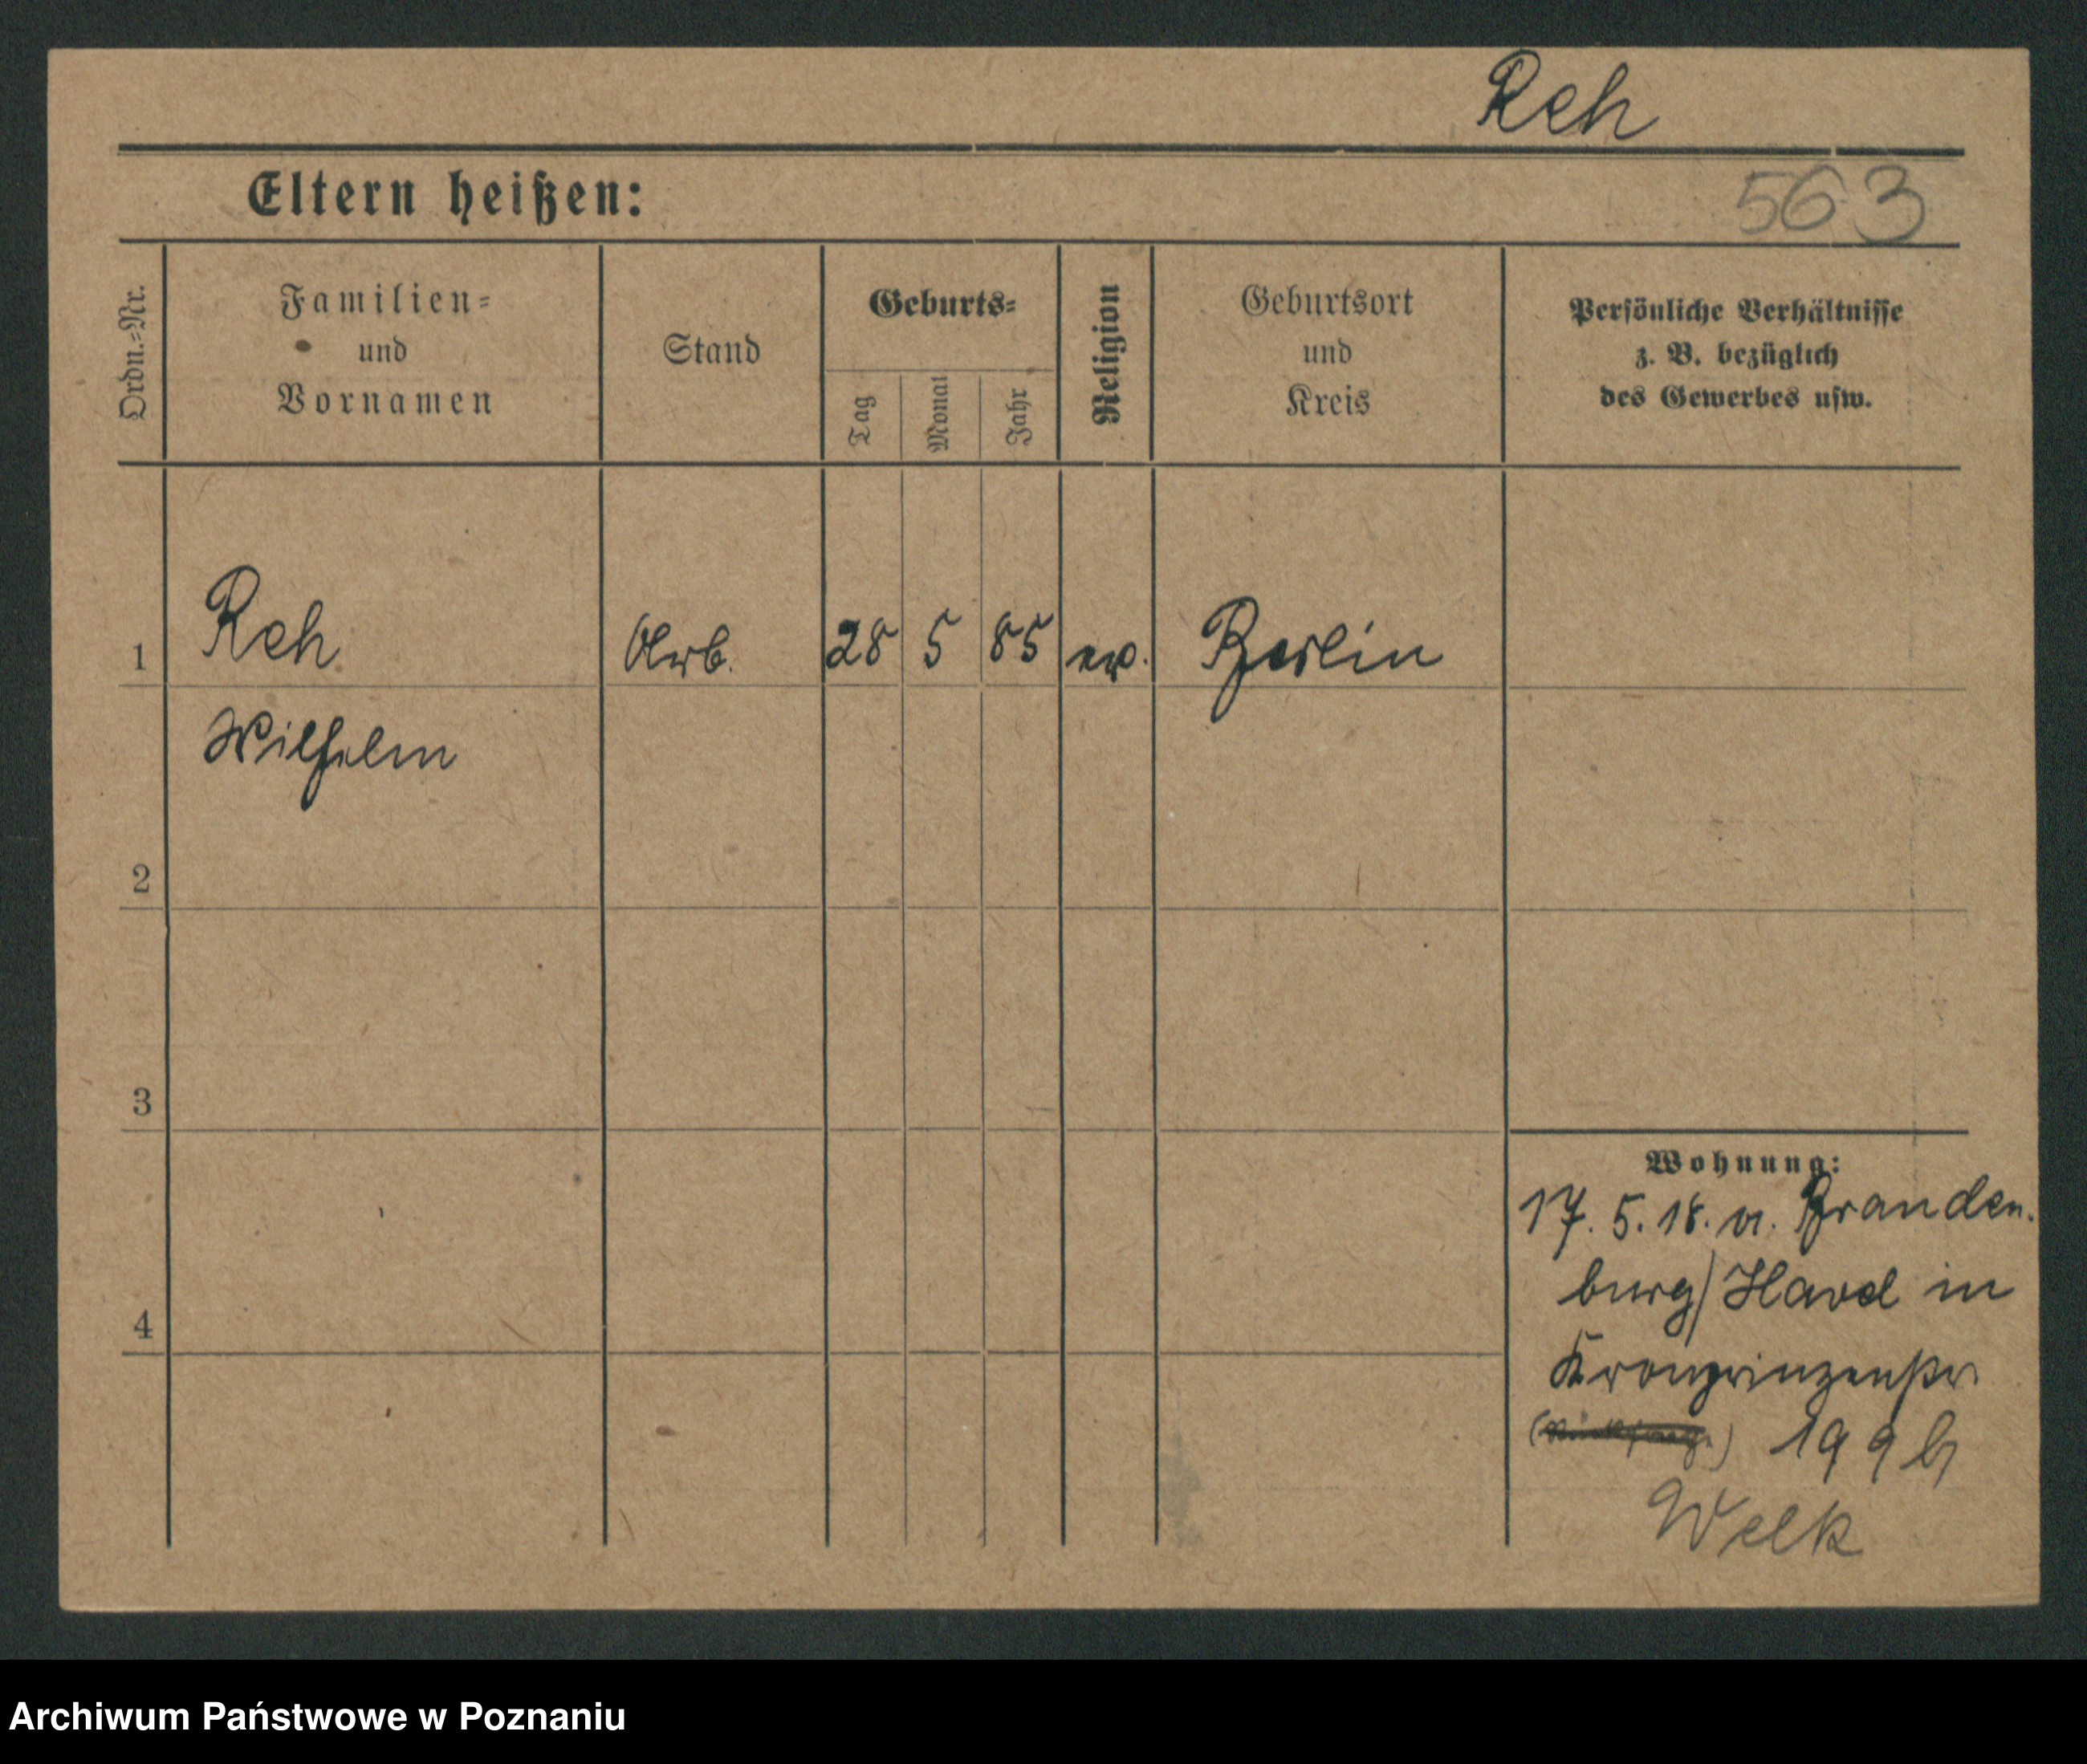 Reh
Eltern heißen:
563
Ordn.-Nr.
Familien-
und
Vornamen
Stand
Geburts-
Tag
Monat
Jahr
Religion
Geburtsort
und
Kreis
Persönliche Verhältnisse
z. B. bezüglich
des Gewerbes usw.
1 Reh Arb. 28 5 85 ev. Berlin
Wilhelm
2
3
4
Wohnung:
17. 5. 18. v. Branden-
burg/Havel in
Kronprinzenstr
199 b
Welk
Archiwum Państwowe w Poznaniu